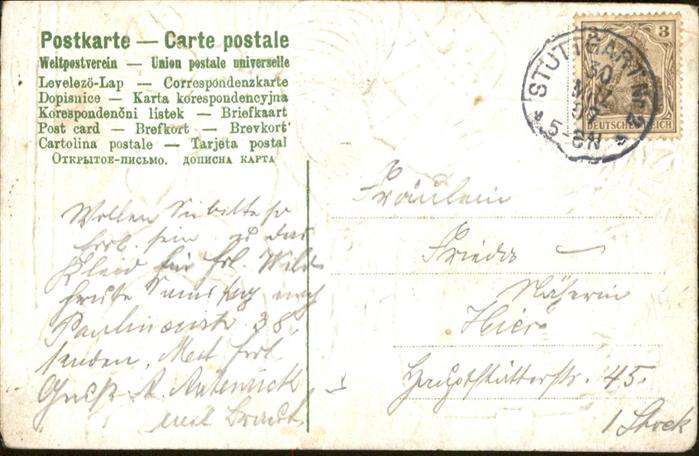 Postkarte — Carte postale
Weltpostverein — Union postale universelle
Levelező-Lap — Correspondenzkarte
Dopisnice — Karta korespondencyjna
Korespondenční listek — Briefkaart
Post card — Brefkort — Brevkort
Cartolina postale — Tarjeta postal
Открытое-письмо. дописна карта
3
DEUTSCHES REICH
STUTTGART Nr. 2
30
5-6N
Wollen Sie bitte so
frdl. sein u das
Kleid für Frl. Wild
heute Samstag nach
Paulinenstr. 38
senden. Mit frdl.
Gruß A. Autenrieth
Fräulein
Frieda —
Näherin
Hier
Hauptstätterstr. 45.
1 Stock